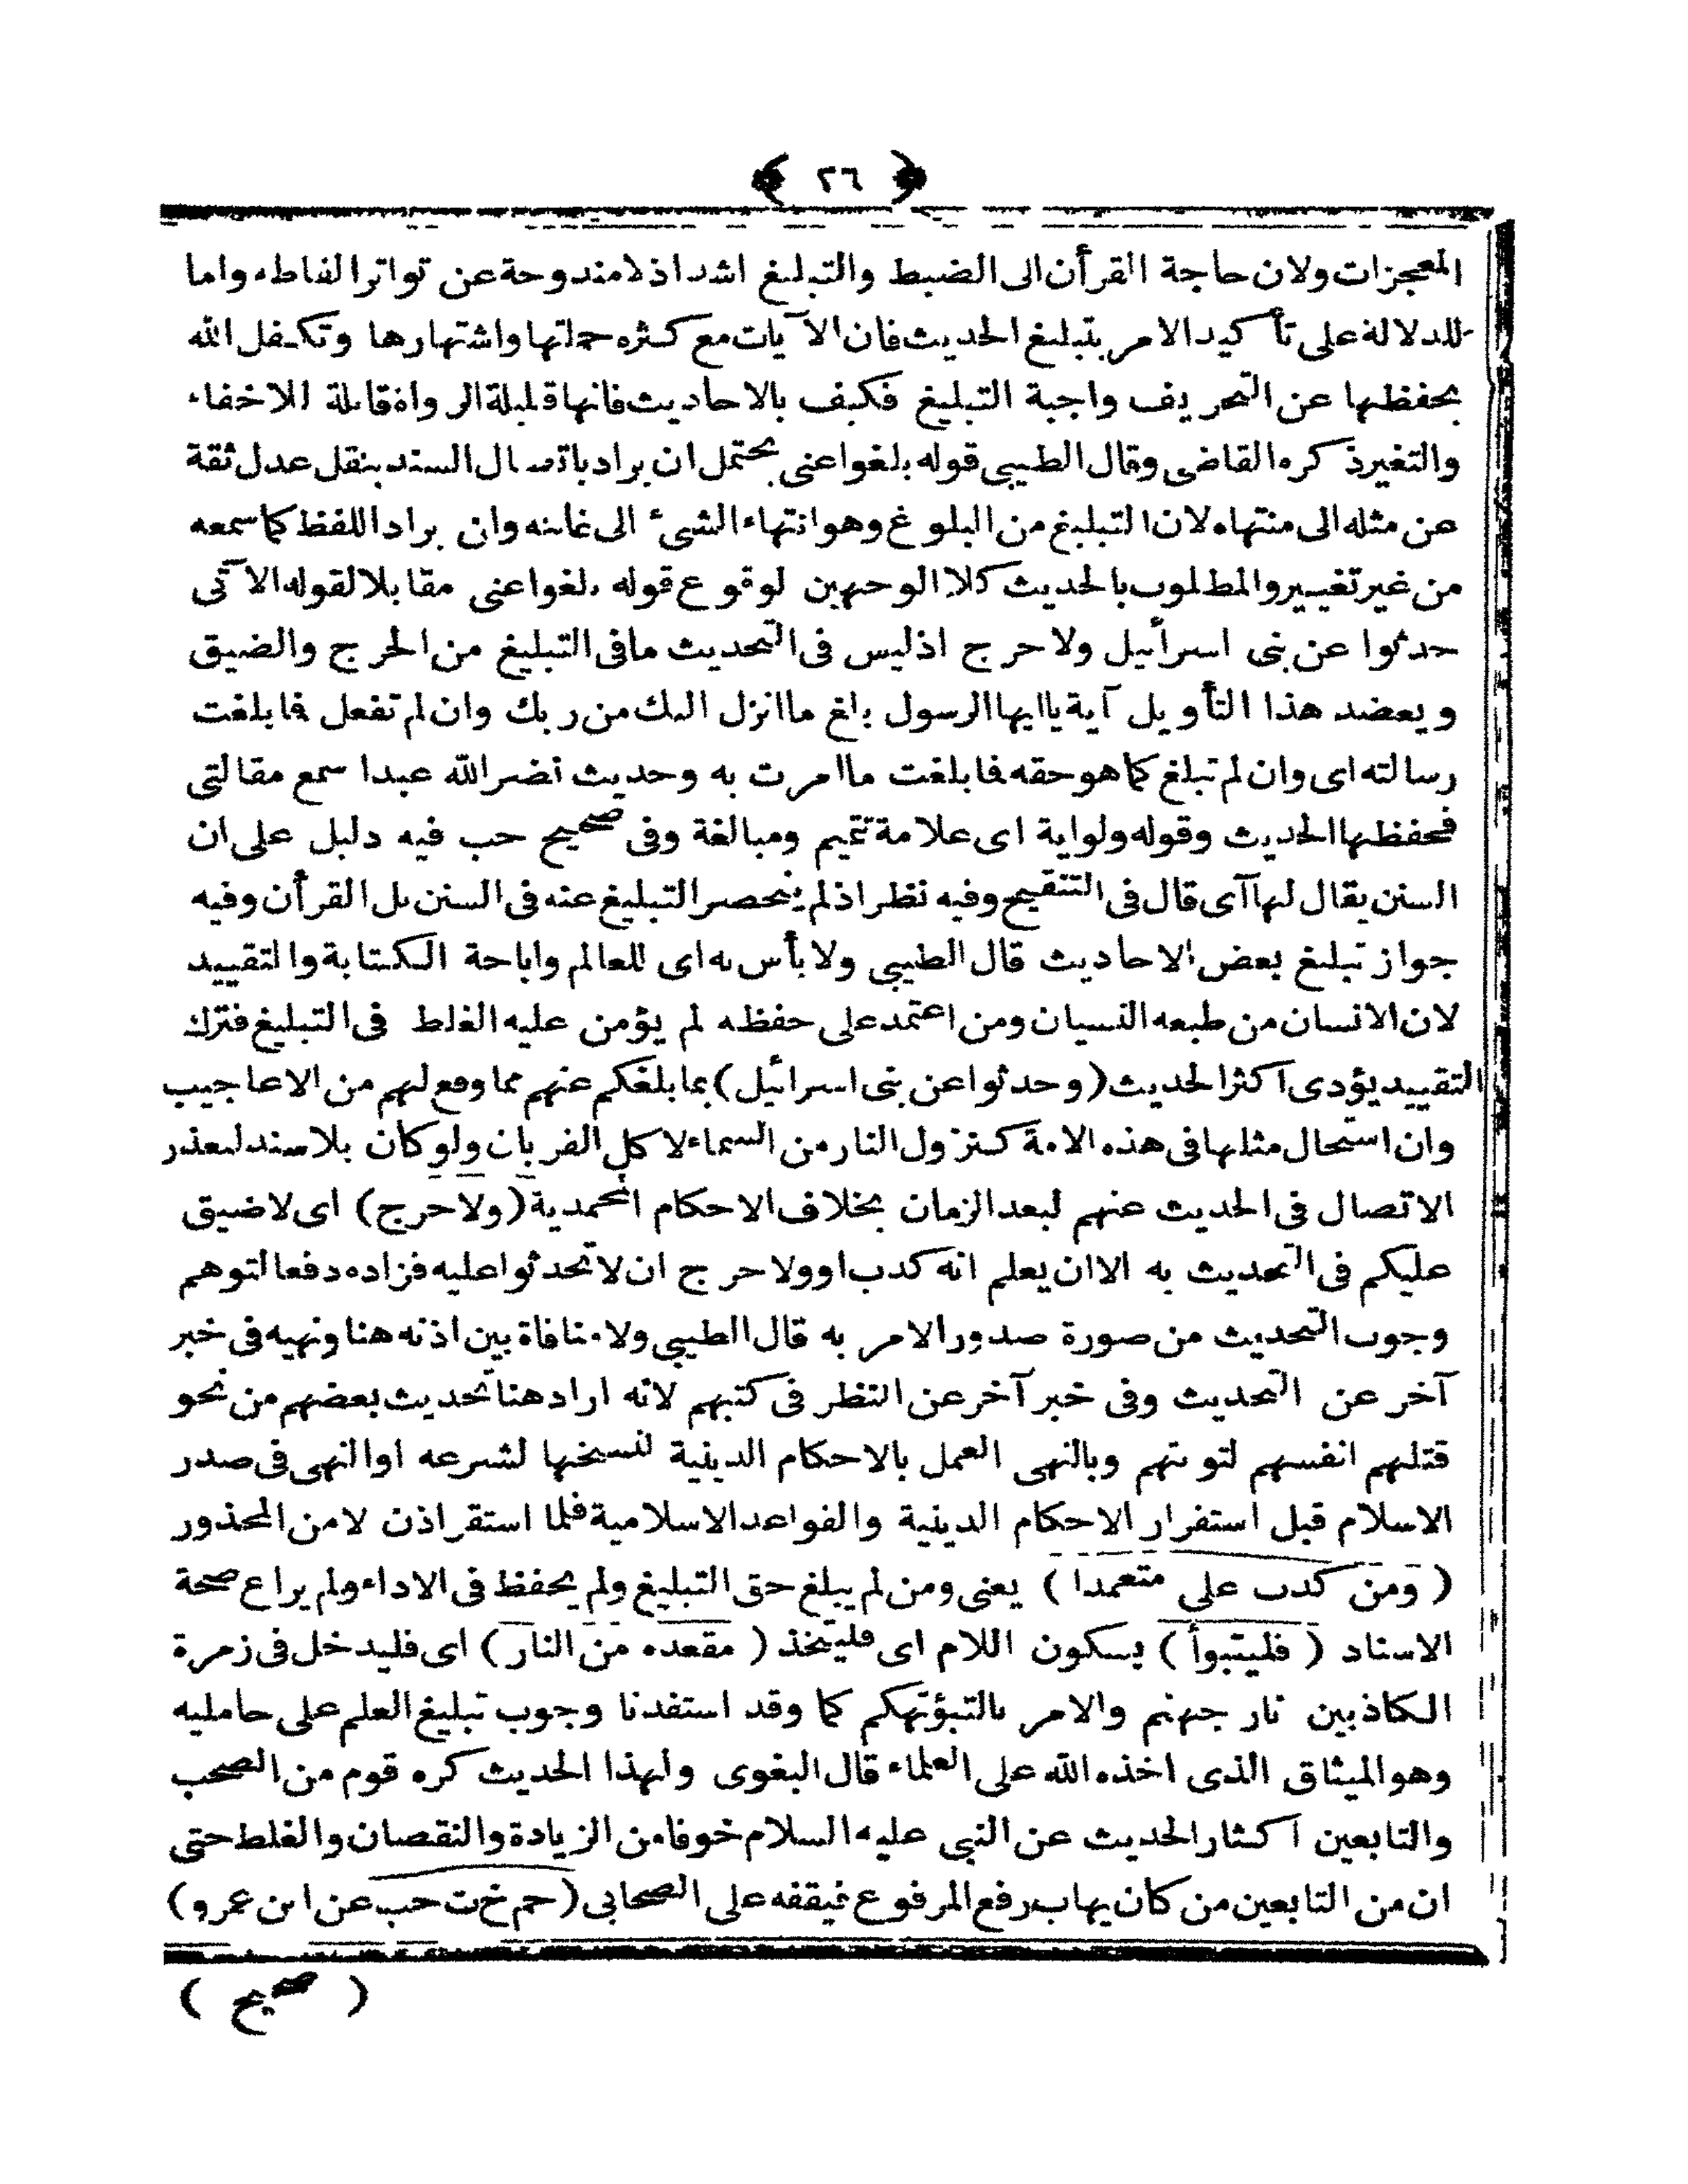 ﴿ ٢٦ ﴾
المعجزات ولان حاجة القرأن الى الضبط والتبليغ اشد اذ لامندوحة عن تواتر الفاظه واما
للدلالة على تأكيد الامر بتبليغ الحديث فان الآيات مع كثره حملتها واشتهارها وتكفل الله
بحفظها عن التحريف واجبة التبليغ فكيف بالاحاديث فانها قليلة الرواة قابلة للاخفاء
والتغير ذكره القاضى وقال الطيبى قوله بلغوا عنى يحتمل ان يراد باتصال السند بنقل عدل ثقة
عن مثله الى منتهاه لان التبليغ من البلوغ وهو انتهاء الشئ الى غايته وان يراد اللفظ كما سمعه
من غير تغيير والمطلوب بالحديث كلا الوجهين لوقوع قوله بلغوا عنى مقابلا لقوله الآتى
حدثوا عن بنى اسرأيل ولا حرج اذ ليس فى التحديث مافى التبليغ من الحرج والضيق
ويعضد هذا التأويل آية ياايها الرسول بلغ ماانزل اليك من ربك وان لم تفعل فما بلغت
رسالته اى وان لم تبلغ كما هو حقه فما بلغت ماامرت به وحديث نضر الله عبدا سمع مقالتى
فحفظها الحديث وقوله ولواية اى علامة تتميم ومبالغة وفى صحيح حب فيه دليل على ان
السنن يقال لها آى قال فى التنقيح وفيه نظر اذ لم ينحصر التبليغ عنه فى السنن بل القرأن وفيه
جواز تبليغ بعض الاحاديث قال الطيبى ولا بأس به اى للعالم واباحة الكتابة والتقييد
لان الانسان من طبعه النسيان ومن اعتمد على حفظه لم يؤمن عليه الغلط فى التبليغ فترك
التقييد يؤدى اكثر الحديث (وحدثوا عن بنى اسرائيل) بما بلغكم عنهم مما وقع لهم من الاعاجيب
وان استحال مثلها فى هذه الامة كنزول النار من السماء لاكل القربان ولو كان بلا سند لتعذر
الاتصال فى الحديث عنهم لبعد الزمان بخلاف الاحكام المحمدية (ولا حرج) اى لا ضيق
عليكم فى التحديث به الا ان يعلم انه كذب او ولا حرج ان لا تحدثوا عليه فزاده دفعا لتوهم
وجوب التحديث من صورة صدور الامر به قال الطيبى ولا منافاة بين اذنه هنا ونهيه فى خبر
آخر عن التحديث وفى خبر آخر عن النظر فى كتبهم لانه اراد هنا تحديث بعضهم من نحو
قتلهم انفسهم لتوبتهم وبالنهى العمل بالاحكام الدينية لنسخها لشرعه اوالنهى فى صدر
الاسلام قبل استقرار الاحكام الدينية والقواعد الاسلامية فلما استقر اذن لامن المحذور
(ومن كذب على متعمدا) يعنى ومن لم يبلغ حق التبليغ ولم يحفظ فى الاداء ولم يراع صحة
الاسناد (فليتبوأ) بسكون اللام اى فليتخذ (مقعده من النار) اى فليدخل فى زمرة
الكاذبين نار جهنم والامر بالتبؤتهكم كما وقد استفدنا وجوب تبليغ العلم على حامليه
وهو الميثاق الذى اخذه الله على العلماء قال البغوى ولهذا الحديث كره قوم من الصحب
والتابعين اكثار الحديث عن النبى عليه السلام خوفا من الزيادة والنقصان والغلط حتى
ان من التابعين من كان يهاب رفع المرفوع فيقفه على الصحابى (حم خ ت حب عن ابن عمرو)
( صحيح )